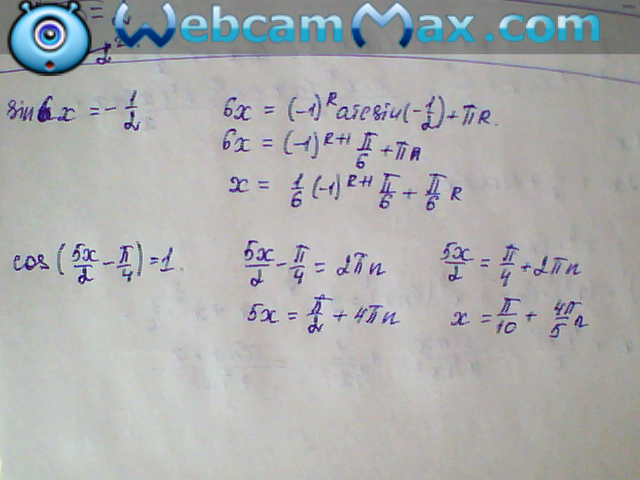 WebcamMax.com
sin 6x = -1/2
6x = (-1)^k arcsin(-1/2) + πk.
6x = (-1)^(k+1) π/6 + πn
x = 1/6 (-1)^(k+1) π/6 + π/6 k
cos(5x/2 - π/4) = 1.
5x/2 - π/4 = 2πn
5x/2 = π/4 + 2πn
5x = π/2 + 4πn
x = π/10 + 4π/5 n